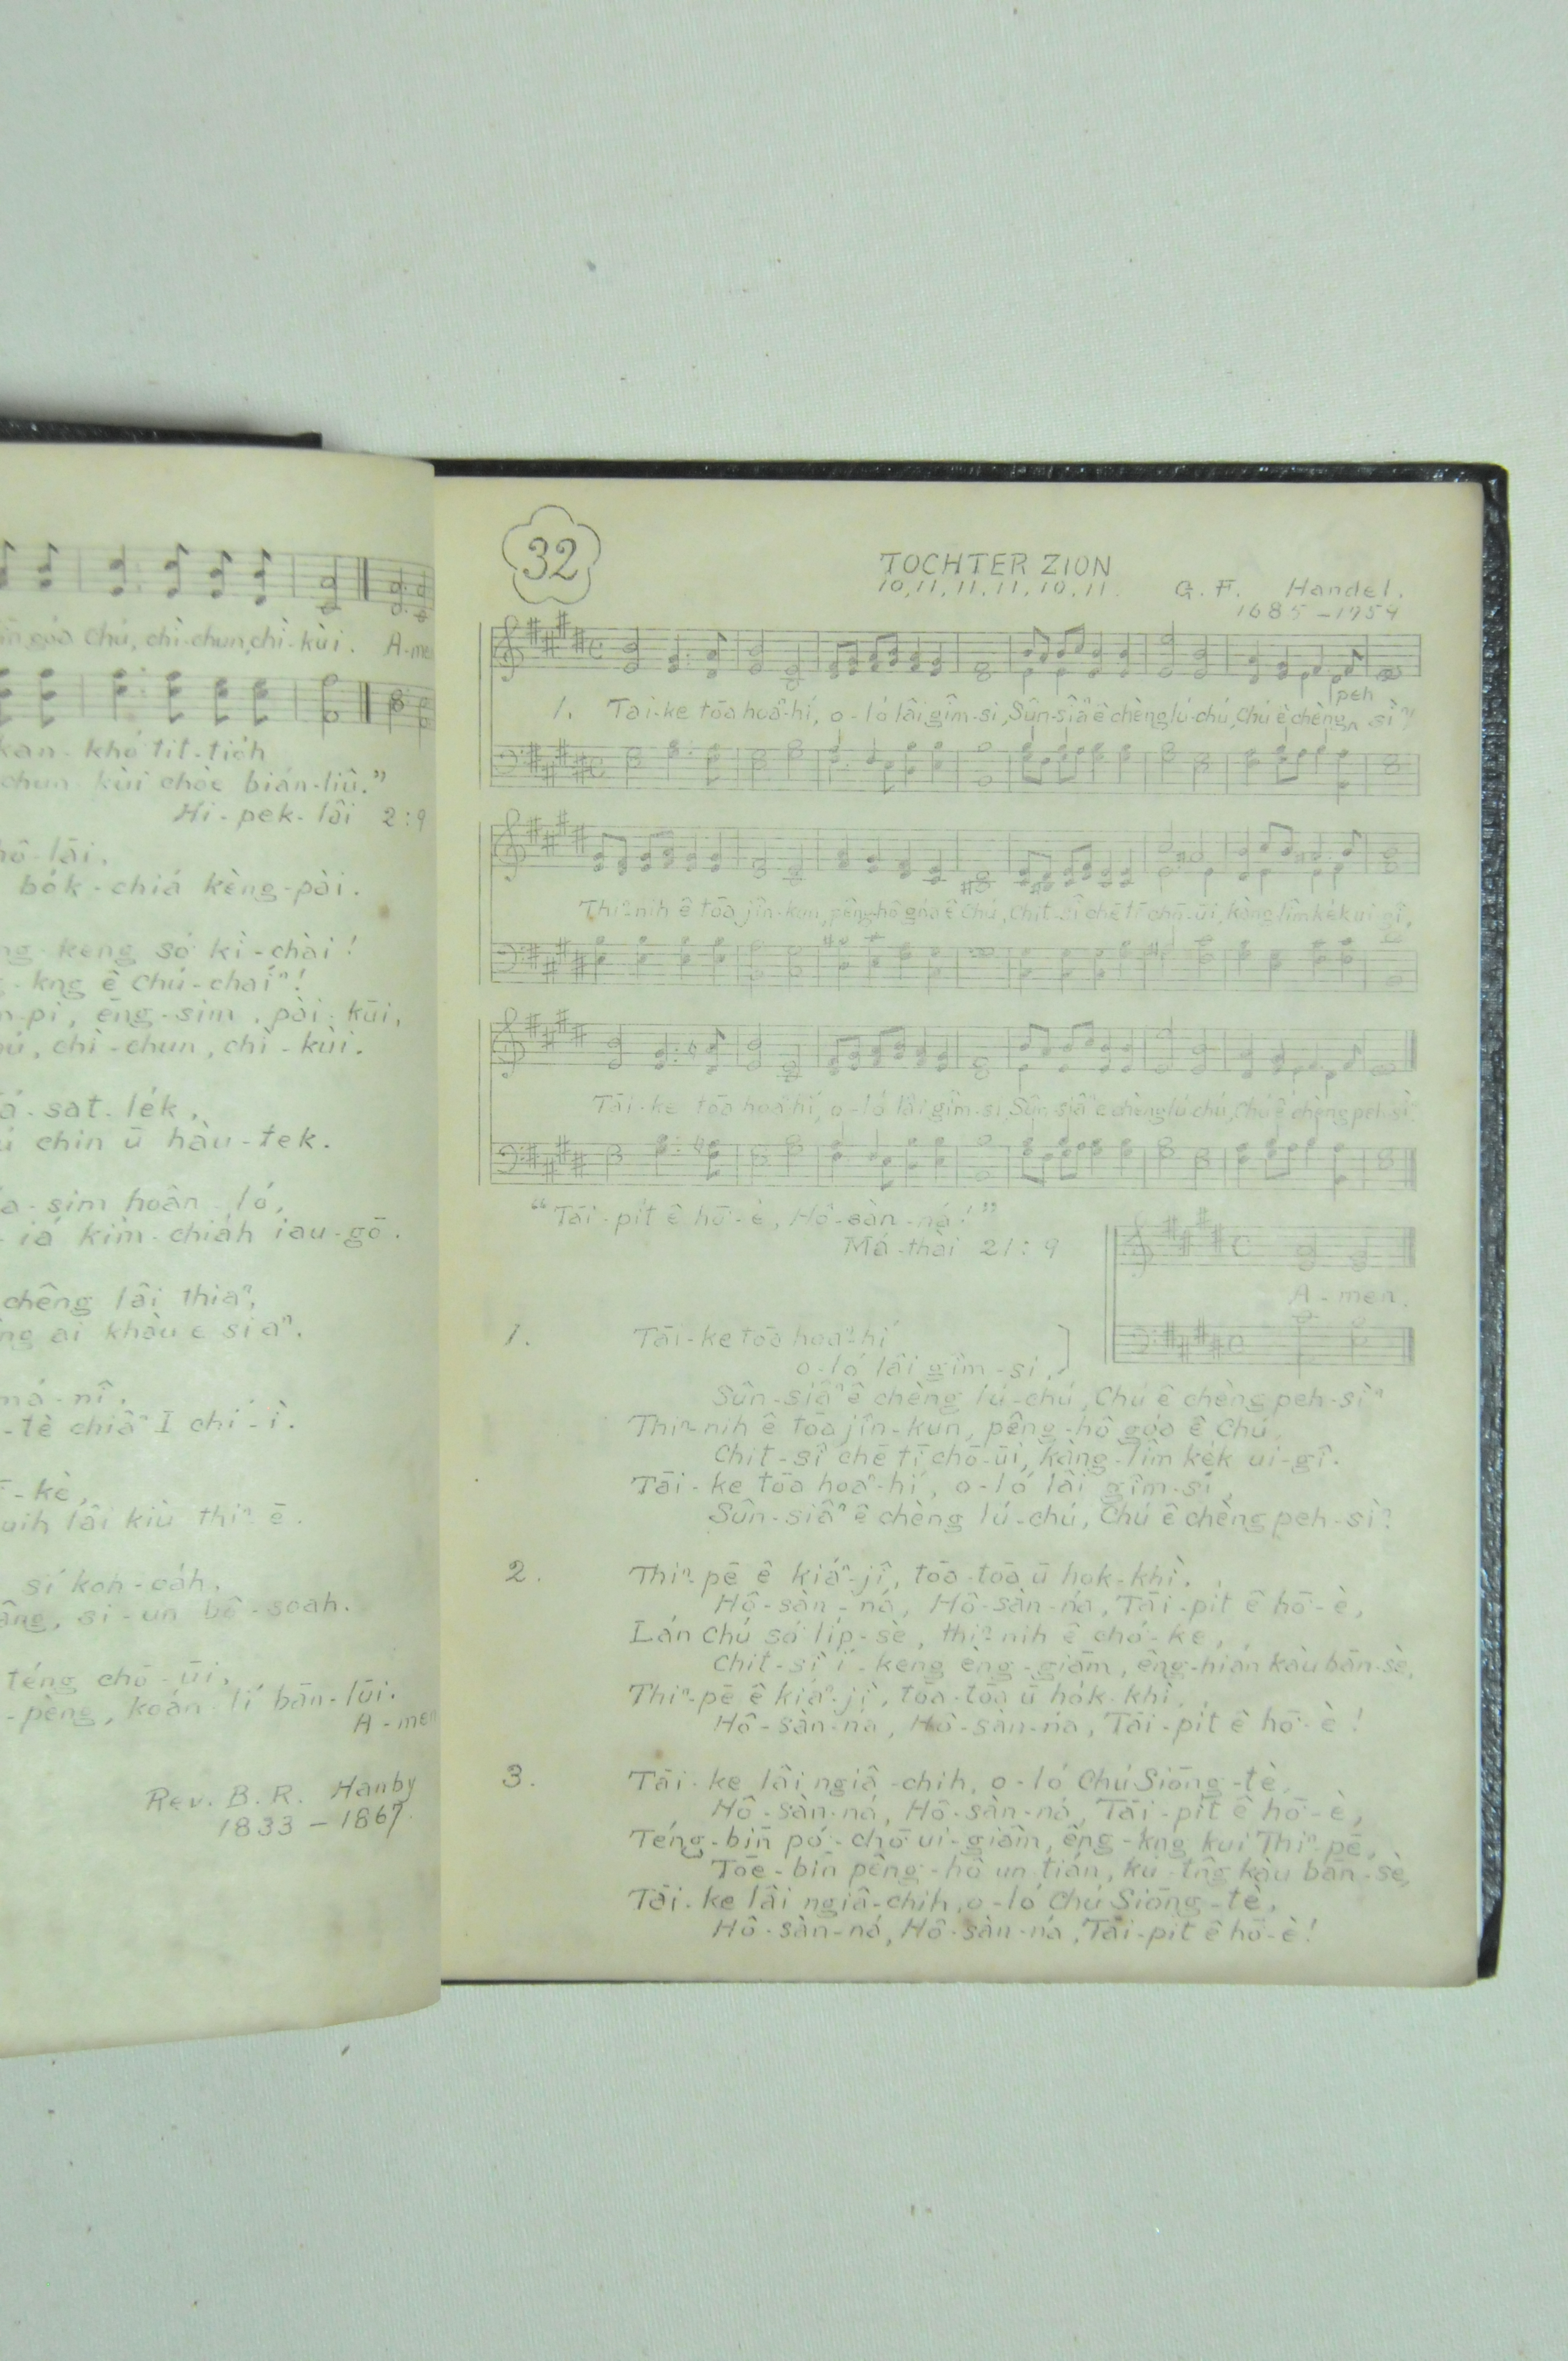 góa Chú, chì-chun, chì-kùi. A-me
kan-khó tit-tio̍h
chun kùi chòe bián-liû."
Hi-pek-lâi 2:9
hô-lāi.
bo̍k-chiá kèng-pài.
keng só͘ kì-chài!
kng ê Chú-chaíⁿ!
n-pi, ēng-sim, pài-kūi,
ú, chì-chun, chì-kùi.
á-sat-le̍k,
chin ū hàu-tek.
a-sim hoân-ló,
iá kim-chiah iau-gō.
chêng lâi thiaⁿ,
ng ai khàu ê siaⁿ.
má-nî.
-tè chiâⁿ I chí-ì.
-kè,
uih lâi kiù thiⁿ ē.
sí koh-oa̍h,
âng, si-un bô-soah.
téng chō-ūi,
-pêng, koán-lí bān-lūi.
A-men
Rev. B. R. Hanby
1833 - 1867.
32
TOCHTER ZION
10, 11, 11, 11, 10, 11.
G. F. Handel.
1685 - 1759
peh
1. Tai-ke tōa hoaⁿ-hí, o-ló lâi gîm-si, Sûn-siâⁿ ê chèng lú-chú, Chú ê chèng^ sìⁿ
Thiⁿ-nih ê tōa jîn-kun, pêng-hô góa ê Chú, Chit-sî chē tī chō-ūi, kàng-lîm ke̍k ui-gî,
Tāi-ke tōa hoaⁿ-hí, o-ló lâi gîm-si, Sûn-siâⁿ ê chèng lú-chú, Chú ê chèng peh-sìⁿ.
"Tāi-pit ê hō͘-è, Hô-sàn-ná!"
Má-thài 21:9
A-men.
1. Tāi-ke tōa hoaⁿ-hí
o-ló lâi gîm-si,
Sûn-siâⁿ ê chèng lú-chú, Chú ê chèng peh-sìⁿ
Thiⁿ-nih ê tōa jîn-kun, pêng-hô góa ê Chú,
Chit-sî chē tī chō-ūi, kàng-lîm ke̍k ui-gî.
Tāi-ke tōa hoaⁿ-hí, o-ló lâi gîm-si,
Sûn-siâⁿ ê chèng lú-chú, Chú ê chèng peh-sìⁿ.
2. Thiⁿ-pē ê kiáⁿ-jî, tōa-tōa ū hok-khì.
Hô-sàn-ná, Hô-sàn-ná, Tāi-pit ê hō͘-è,
Lán Chú só͘ li̍p-sè, thiⁿ-nih ê chó-ke,
Chit-sî í-keng èng-giām, êng-hián kàu bān-sè,
Thiⁿ-pē ê kiáⁿ-jî, tōa-tōa ū hok-khì.
Hô-sàn-ná, Hô-sàn-ná, Tāi-pit ê hō͘-è!
3. Tāi-ke lâi ngiâ-chih, o-ló Chú Siōng-tè,
Hô-sàn-ná, Hô-sàn-ná, Tāi-pit ê hō͘-è,
Téng-bīn pó-chō ui-giâm, êng-kng kui Thiⁿ-pē,
Tōe-bīn pêng-hô un-tián, kú-tn̂g kàu bān-sè,
Tāi-ke lâi ngiâ-chih, o-ló Chú Siōng-tè,
Hô-sàn-ná, Hô-sàn-ná, Tāi-pit ê hō͘-è!